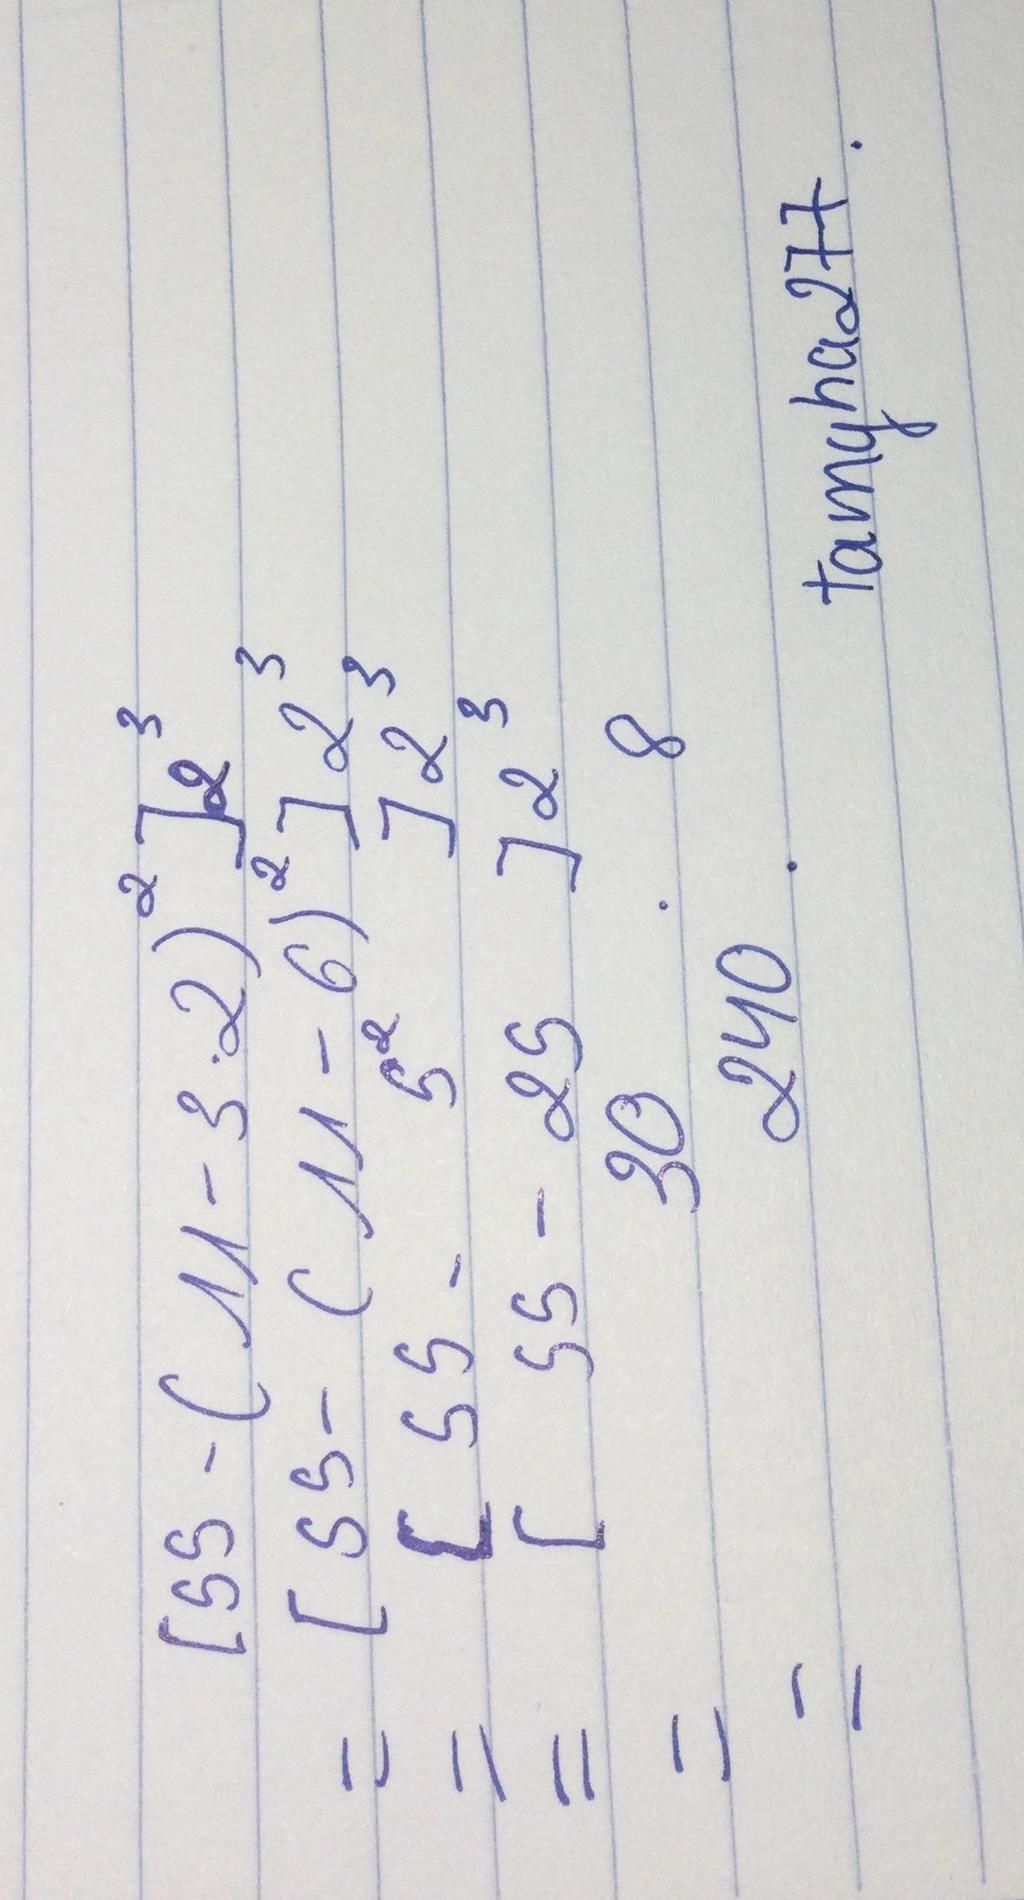 [55 - (11 - 3.2)²]2³
= [55 - (11 - 6)²]2³
= [55 - 5²]2³
= [55 - 25]2³
= 30 . 8
= 240.
tamqha277.